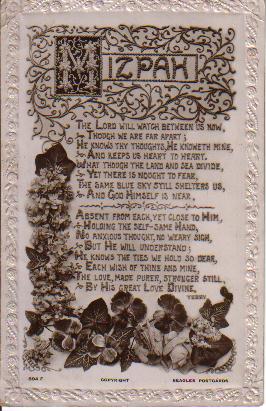 MIZPAH
THE LORD WILL WATCH BETWEEN US NOW,
THOUGH WE ARE FAR APART;
HE KNOWS THY THOUGHTS, HE KNOWETH MINE,
AND KEEPS US HEART TO HEART.
WHAT THOUGH THE LAND AND SEA DIVIDE,
YET THERE IS NOUGHT TO FEAR,
THE SAME BLUE SKY STILL SHELTERS US,
AND GOD HIMSELF IS NEAR,
ABSENT FROM EACH, YET CLOSE TO HIM,
HOLDING THE SELF-SAME HAND,
NO ANXIOUS THOUGHT, NO WEARY SIGH,
BUT HE WILL UNDERSTAND;
HE KNOWS THE TIES WE HOLD SO DEAR,
EACH WISH OF THINE AND MINE,
THE LOVE, MADE PURER, STRONGER STILL,
BY HIS GREAT LOVE DIVINE,
TERRY
894 F. COPYRIGHT BEAGLES POSTCARDS